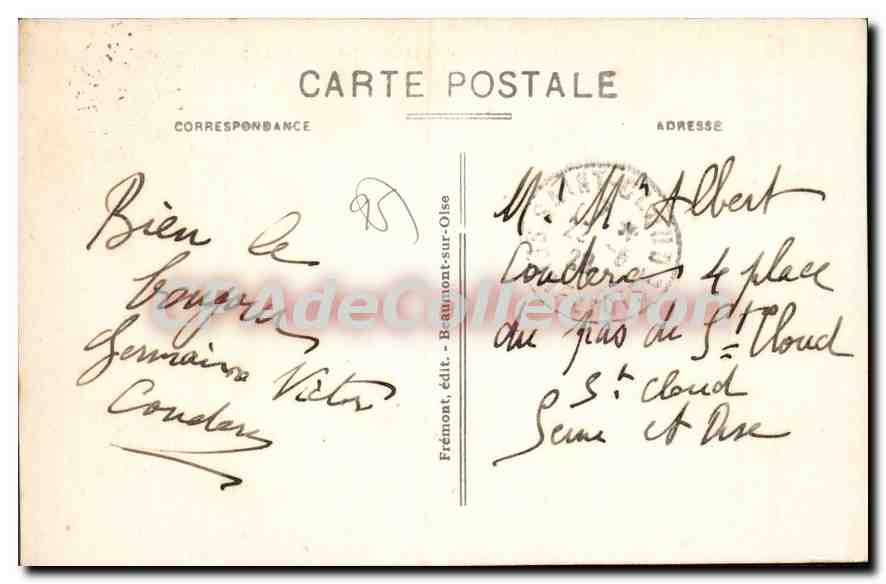 CARTE POSTALE
CORRESPONDANCE
ADRESSE
Bien le
bonjour
Germaine Victor
Couderc
25
Frémont, édit. - Beaumont-sur-Oise
M. Mme Albert
Couderc 4 place
du pas de St Cloud
St Cloud
Seine et Oise
CPAdeCollection